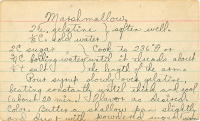 Marshmallows
2 T. gelatine } soften well.
½ C. cold water }
2 C. sugar } Cook to 236° or
¾ C. boiling water until it threads about
⅛ t. salt the length of the arm.
Pour syrup slowly over gelatine,
beating constantly until thick and cool
(about 20 min.) Flavor as desired
Color. Butter a shallow pan slightly
and dust with powdered sugar